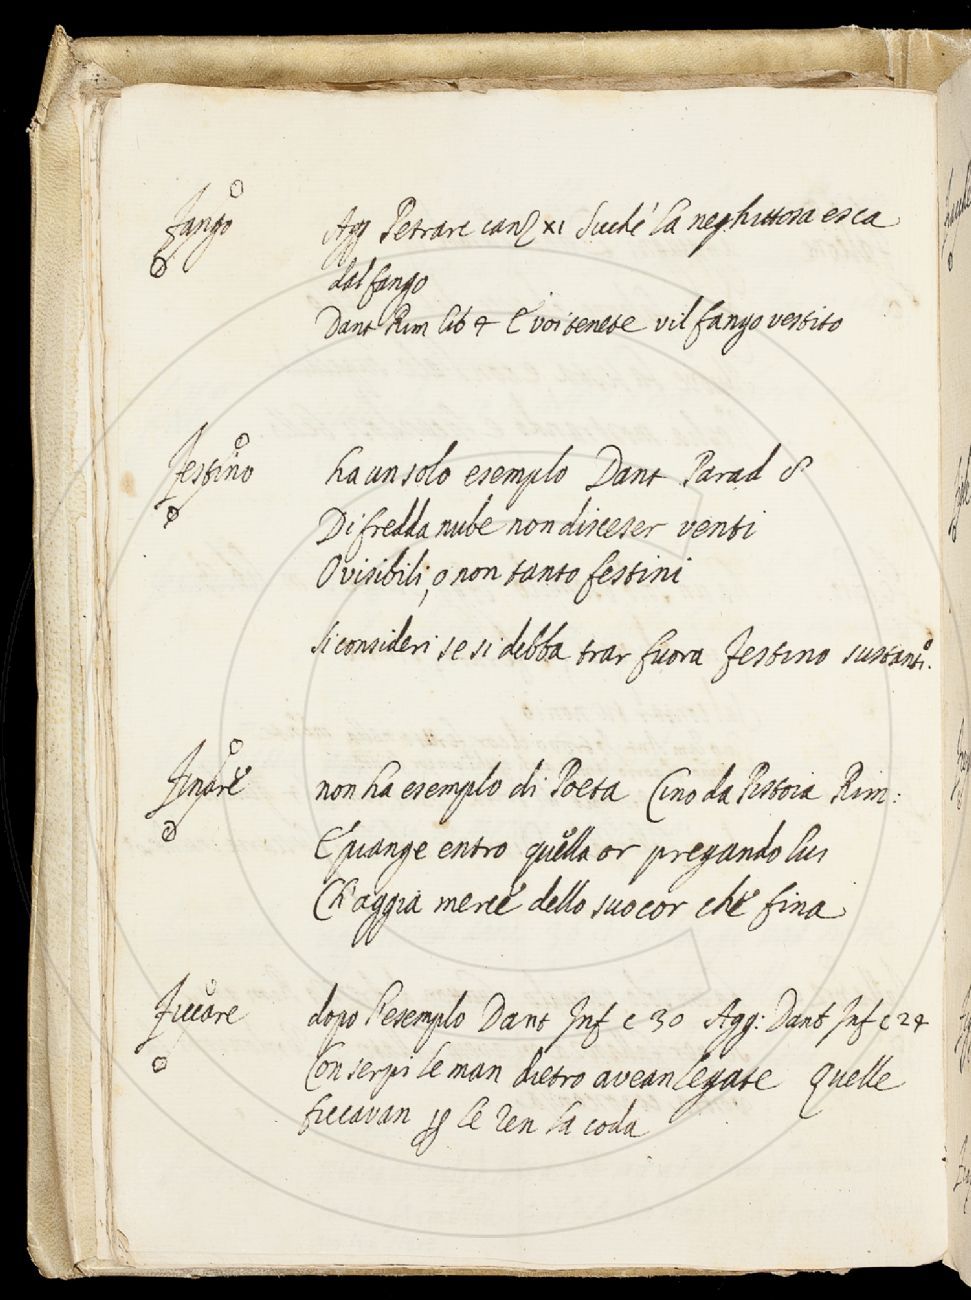 Fango Agg Petrarc canz xi Siche la neghittosa esca
dal fango
Dant Rim lib 4 E voi tenete vil fango vestito
Festino ha un solo esemplo Dant Parad 8
Di fredda nube non disceser venti
O visibili, o non tanto festini
Si consideri se si debba trar fuora Festino sustanti.º
Finare non ha esemplo di Poeta Cino da Pistoia Rim:
E piange entro quella or pregando lui
Ch'aggia mercé dello suo cor che fina
Ficcare dopo l'esemplo Dant Inf c 30 Agg: Dant Inf c 24
Con serpi le man dietro avean legate quelle
ficcavan ꝑ le ren la coda